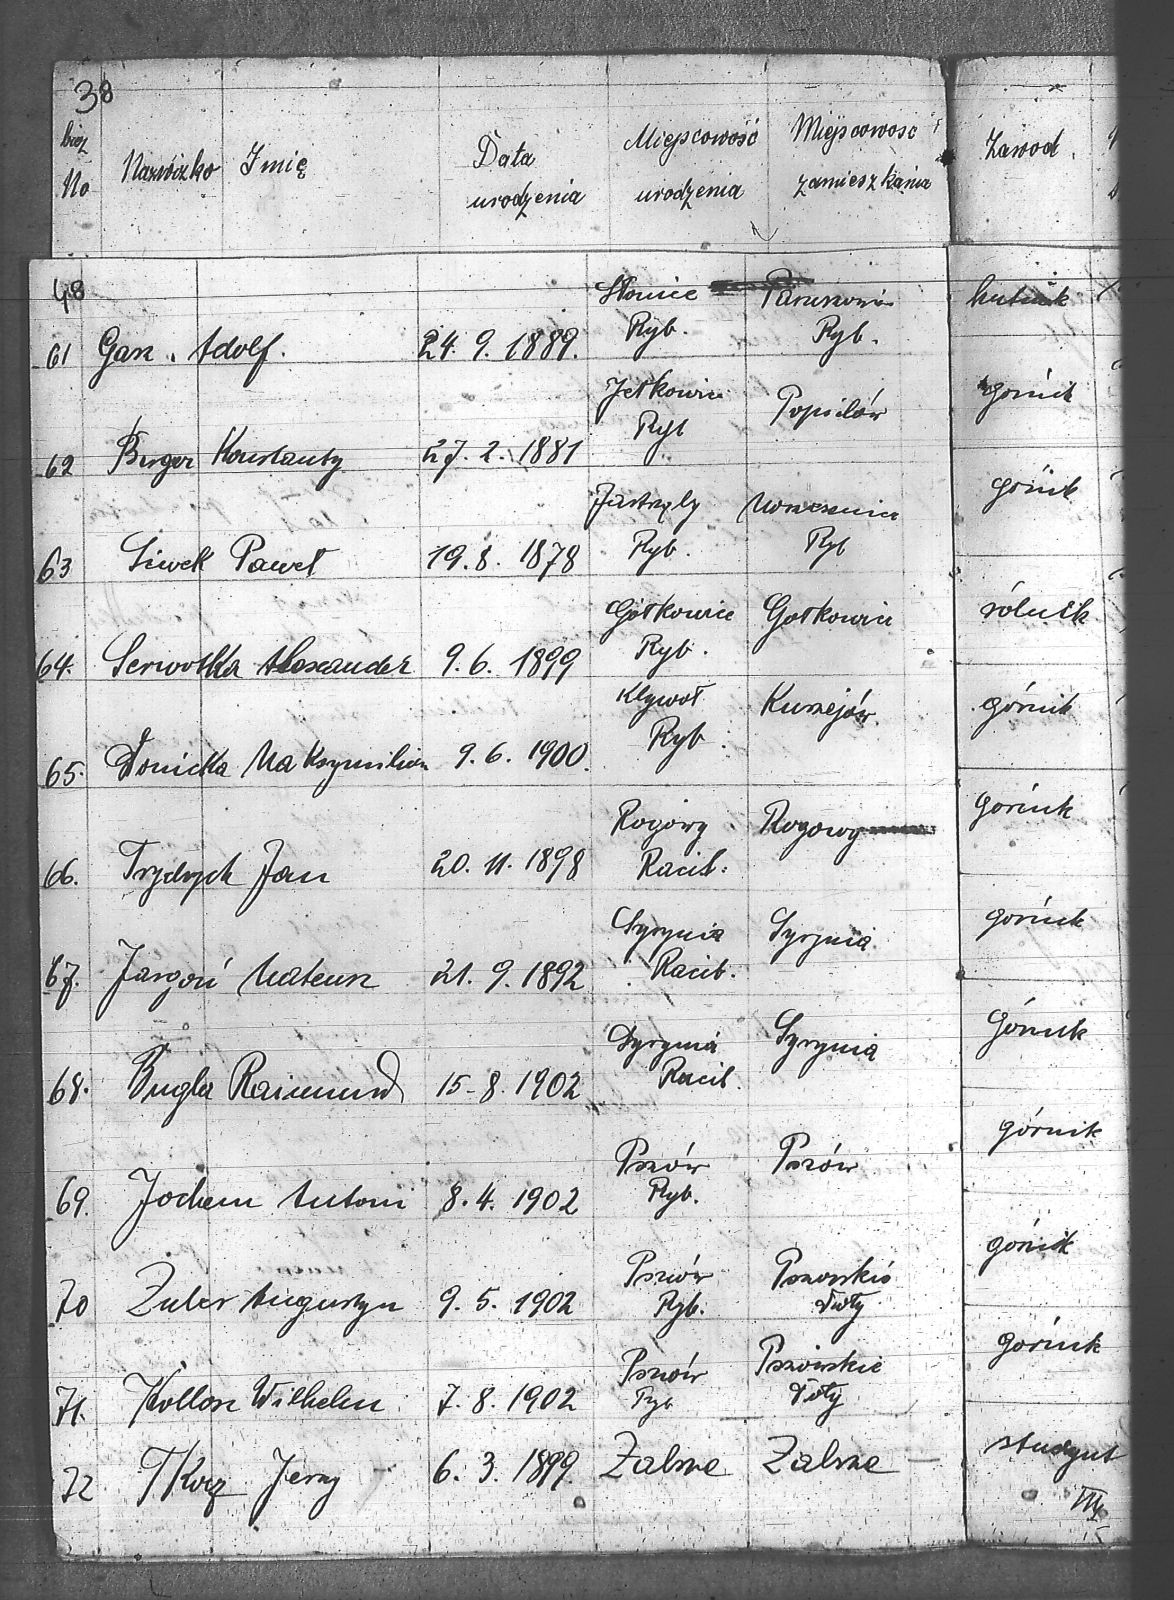 38
bież No Nazwisko Imię Data urodzenia Miejscowość urodzenia Miejscowość zamieszkania Zawod
48
61 Adolf. 24. 9. 1889. Ryb. Ryb. hutnik
62 Berger Konstanty 27. 2. 1881 Jetkowice Ryb Popielów gornik
63 Siwek Paweł 19. 8. 1878 Ryb. Ryb górnik
64. Serwotka Alexander 9. 6. 1899 Gołkowice Ryb. Gołkowice rólnik
65. Maksymilian 9. 6. 1900. Ryb. górnik
66. Jan 20. 11. 1898 Rogowy Racib. Rogowy gornik
67. Jargoń Mateusz 21. 9. 1892 Syrynia Racib. Syrynia gornik
68. Bugla Raimund 15-8. 1902 Syrynia Racib. Syrynia górnik
69. Jochem Antoni 8. 4. 1902 Pszów Ryb. Pszów górnik
70 Zuber Augustyn 9. 5. 1902 Pszów Ryb. Pszowskie Doły górnik
71. Wilhelm 7. 8. 1902 Pszów Ryb Pszowskie Doły gornik
72 Tkocz Jerzy 6. 3. 1899. Zabrze Zabrze student